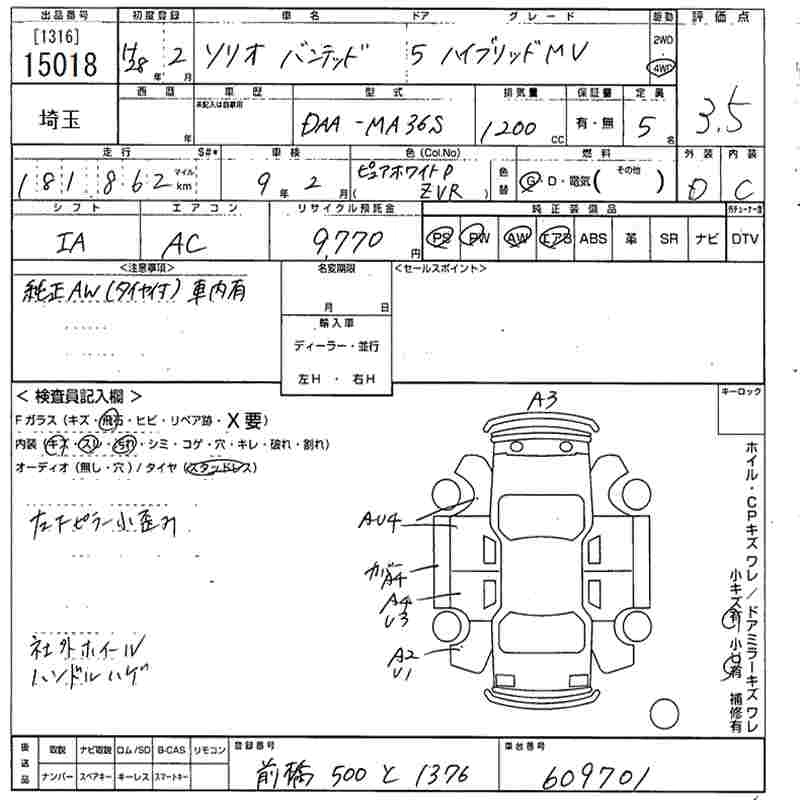 出品番号 初度登録 車名 ドア グレード 駆動 評価点
[1316]
15018 H28 年 2 月 ソリオ バンデッド 5 ハイブリッドMV 2WD 4WD 3.5
埼玉 西暦 年 車歴 未記入は自家用 型式 DAA-MA36S 排気量 1200 CC 保証書 有・無 定員 5 名
走行 S#* 車検 色(Col.No) 燃料 外装 内装
181862 マイル km 9 年 2 月 ピュアホワイトP ( ZVR ) 色替 G・D・電気( その他 ) D C
シフト エアコン リサイクル預託金 純正装備品
IA AC 9,770 円 PS PW AW エアB ABS 革 SR ナビ DTV
<注意事項> 名変期限 <セールスポイント>
純正AW(タイヤ付)車内有
月 日
輸入車
ディーラー・並行
左H ・ 右H
<検査員記入欄> キーロック
Fガラス(キズ・飛石・ヒビ・リペア跡・X要)
内装(キズ・スレ・汚れ・シミ・コゲ・穴・キレ・破れ・割れ)
オーディオ(無し・穴)/タイヤ(スタッドレス)
左下ピラー小歪み
社外ホイール
ハンドルハゲ
A3
AU4
カバーA4
A4
U3
A2
U1
ホイル・CPキズ ワレ / ドアミラーキズ ワレ
小キズ有 小凹有 補修有
後送品 取説 ナビ取説 ロム/SD B-CAS リモコン
ナンバー スペアキー キーレス スマートキー
登録番号 前橋 500 と 1376
車台番号 609701